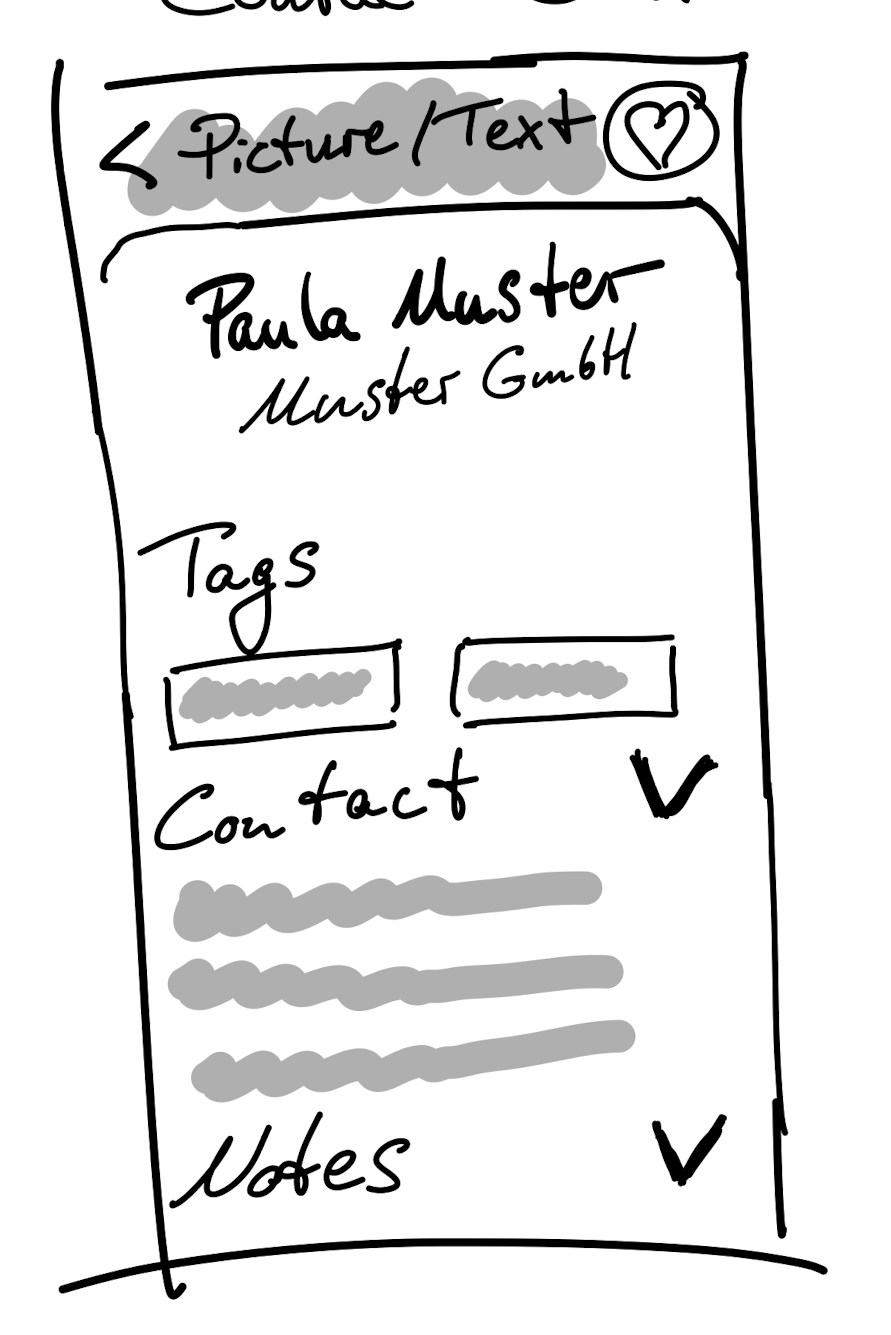 Picture/Text
Paula Muster
Muster GmbH
Tags
Contact
Notes